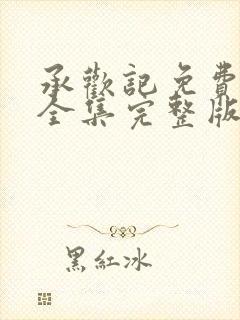 承歡記免費
全集完整版
黑紅冰